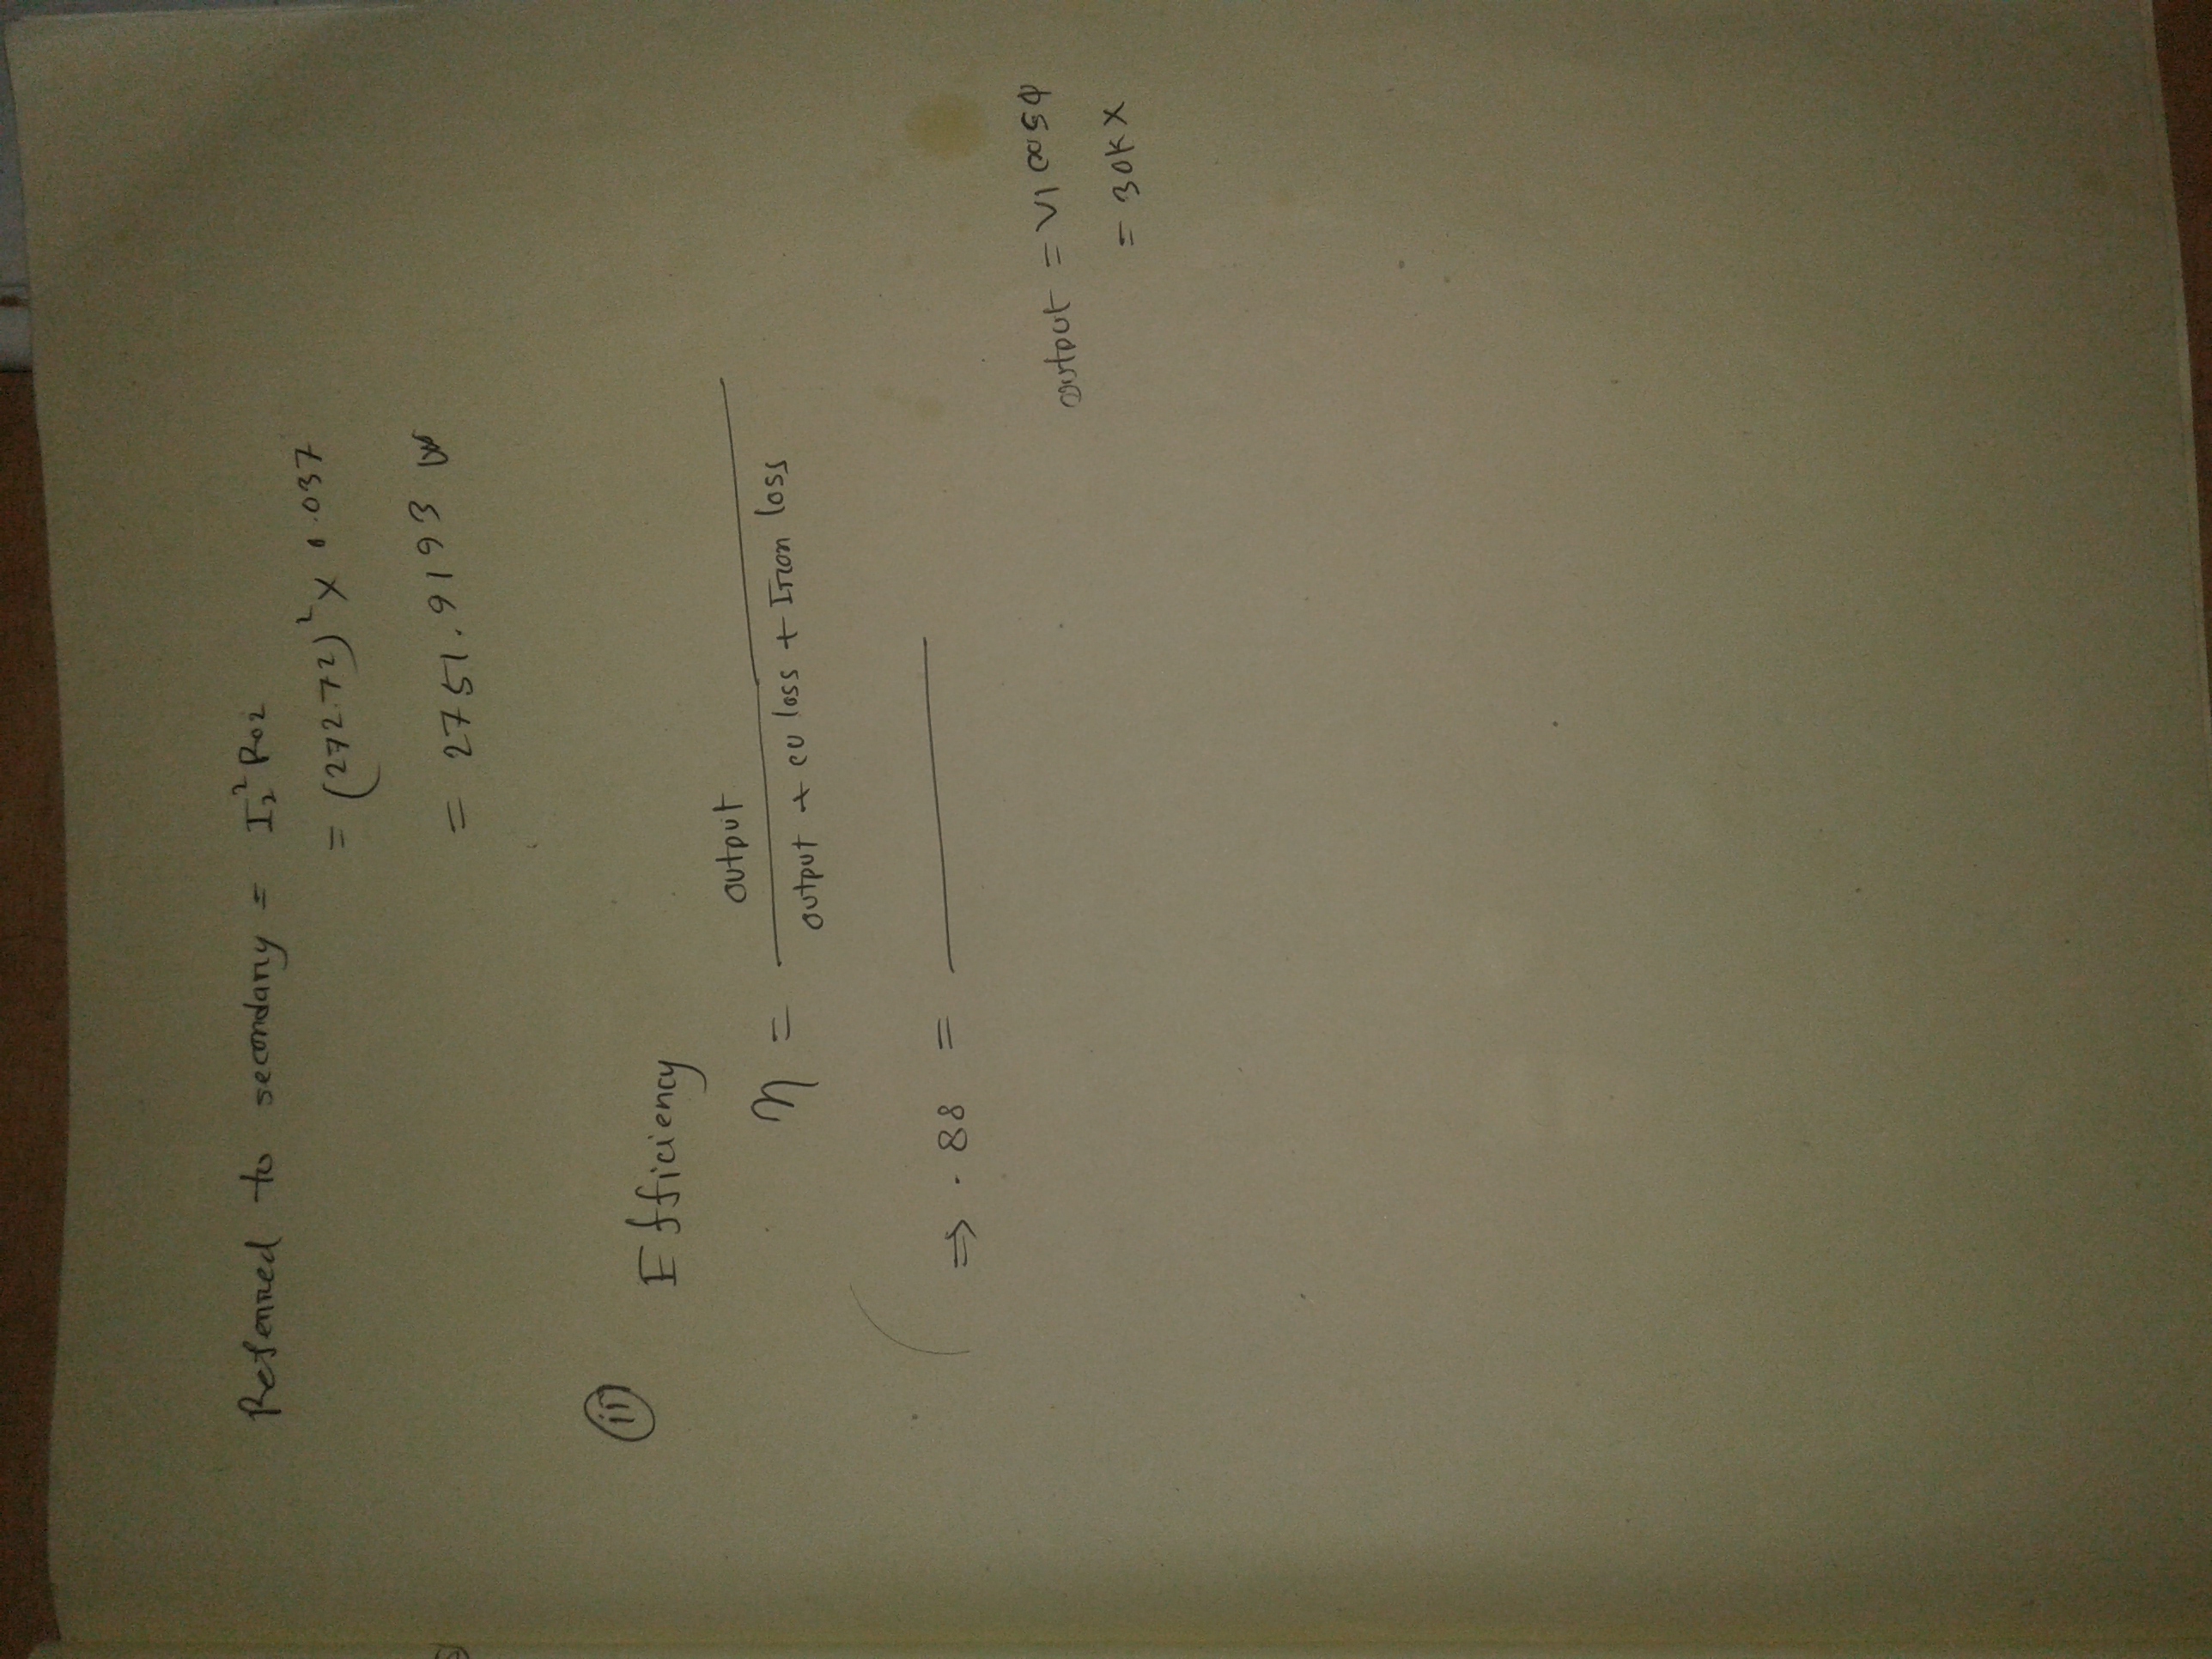 Referred to secondary = I₂² R₀₂
= (272.72)² × 0.037
= 2751.9193 W
(ii)
Efficiency
η = output / output + cu loss + Iron loss
⇒ .88 =
output = VI cosφ
= 30K ×